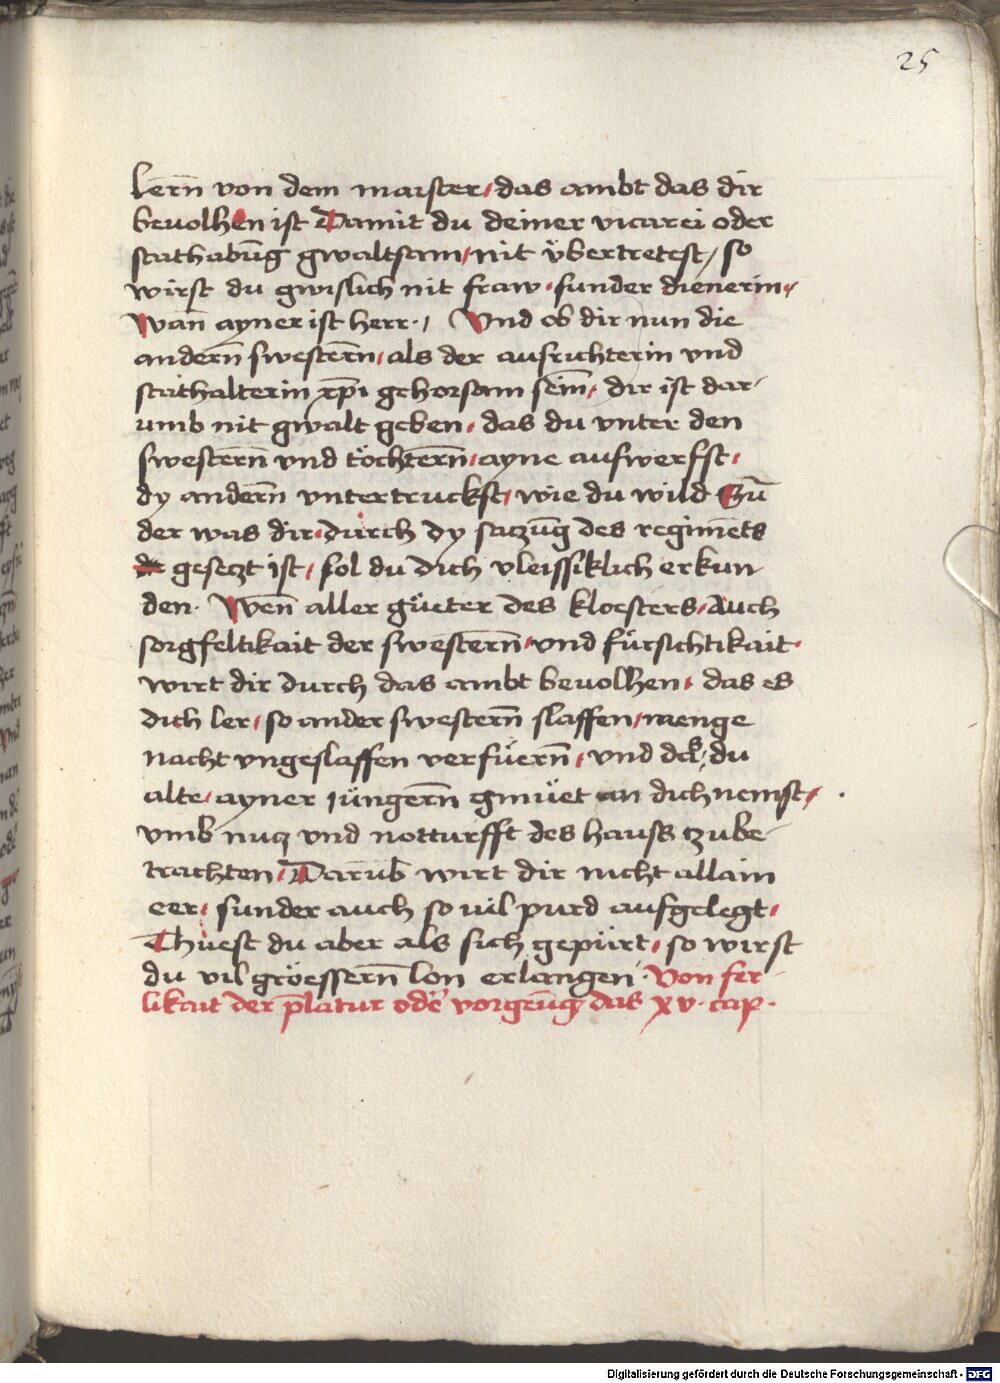 25
lern̄ von dem maister, das ambt das dir
bevolhen ist Damit du deiner vicarei oder
stathabūg gwaltsam, nit v̈bertretest, so
wirst du gwislich nit fraw. sunder dienerin,
Wan̄ ayner ist herr., Vnd ob dir nun die
andern̄ swestern̄, als der ausrichterin vnd
stathalterin xp̄i gehorsam sein̄, dir ist dar-
umb nit gwalt geben, das du vnter den
swestern̄ vnd töchtern̄, ayne aufwerfst,
dy andern̄ vntertruckst, wie du wild Sun̄
der was dir durch dy saczūg des regimēts
gesetzt ist, sol du dich vleissiklich erkun
den. Wen̄ aller gueter des kloesters, Auch
sorgfeltikait der swestern̄, vnd fürsichtikait.
wirt dir durch das ambt bevolhen, das es
dich ler, so ander swestern̄ slaffen, menge
nacht vngeslaffen verfüern̄, vnd du
alte, ayner jüngern̄ gmüet an dich nemst,
vmb nucz vnd notturfft des hauss czu be-
trachten, Darūb wirt dir nicht allain
eer, sunder auch so vil purd aufgelegt,
Thuest du aber als sich gepürt, so wirst
du vil gröessern̄ lon erlangen. Von fer-
likait der p̄latur oder vorgeūg das xv. cap.
Digitalisierung gefördert durch die Deutsche Forschungsgemeinschaft - DFG